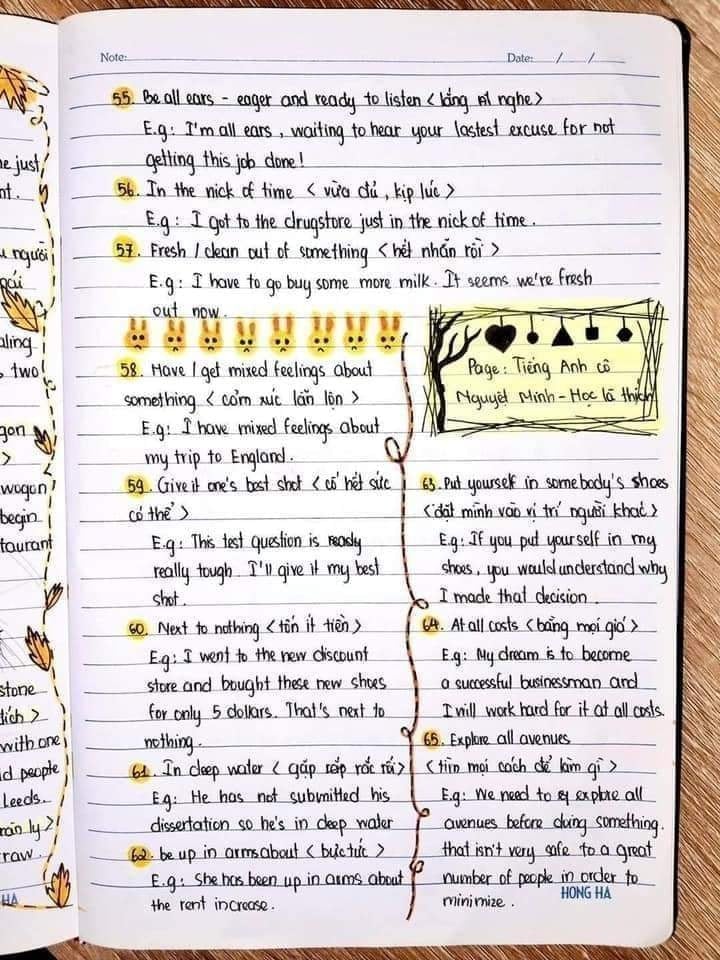 Note:
Date: / /
55. Be all ears - eager and ready to listen <lắng nghe>
E.g: I'm all ears, waiting to hear your lastest excuse for not
getting this job done!
56. In the nick of time <vừa đủ, kịp lúc>
E.g: I got to the drugstore just in the nick of time.
57. Fresh / clean out of something <hết nhẵn rồi>
E.g: I have to go buy some more milk. It seems we're fresh
out now.
58. Have / get mixed feelings about
something <cảm xúc lẫn lộn>
E.g: I have mixed feelings about
my trip to England.
59. Give it one's best shot <cố hết sức
có thể>
E.g: This test question is
really tough. I'll give it my best
shot.
60. Next to nothing <tốn ít tiền>
E.g: I went to the new discount
store and bought these new shoes
for only 5 dollars. That's next to
nothing.
61. In deep water <gặp rắc rối>
E.g: He has not submitted his
dissertation so he's in deep water
62. be up in arms about <bực tức>
E.g: She has been up in arms about
the rent increase.
Page: Tiếng Anh cô
Nguyệt Minh - Học là thích
63. Put yourself in somebody's shoes
<đặt mình vào vị trí người khác>
E.g: If you put yourself in my
shoes, you would understand why
I made that decision.
64. At all costs <bằng mọi giá>
E.g: My dream is to become
a successful businessman and
I will work hard for it at all costs.
65. Explore all avenues
<tìm mọi cách để làm gì>
E.g: We need to explore all
avenues before doing something.
that isn't very safe to a great
number of people in order to
minimize.
HONG HA
e just
nt.
người
aling
two
gon
>
wagon
begin
taurant
stone
đích>
with one
d people
Leeds.
ly>
raw.
HA